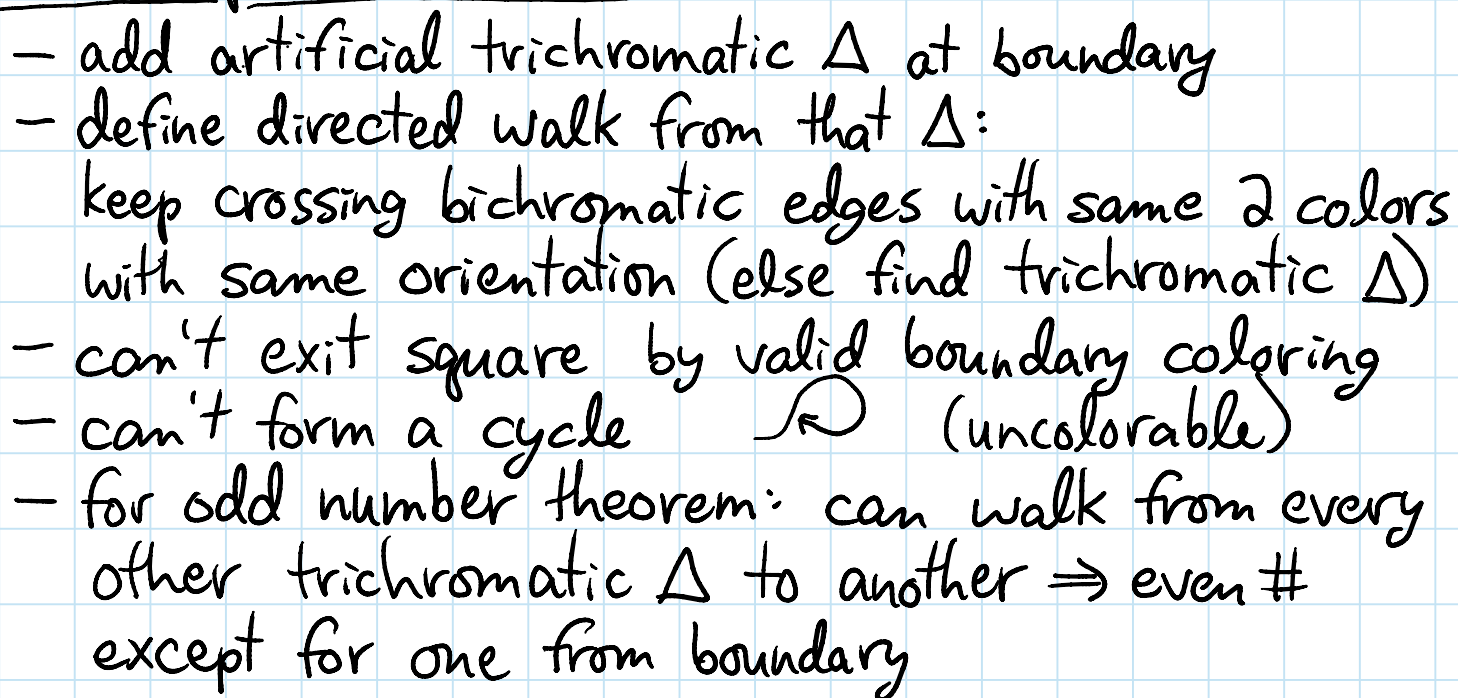 – add artificial trichromatic Δ at boundary
– define directed walk from that Δ:
keep crossing bichromatic edges with same 2 colors
with same orientation (else find trichromatic Δ)
– can't exit square by valid boundary coloring
– can't form a cycle (uncolorable)
– for odd number theorem: can walk from every
other trichromatic Δ to another ⇒ even #
except for one from boundary